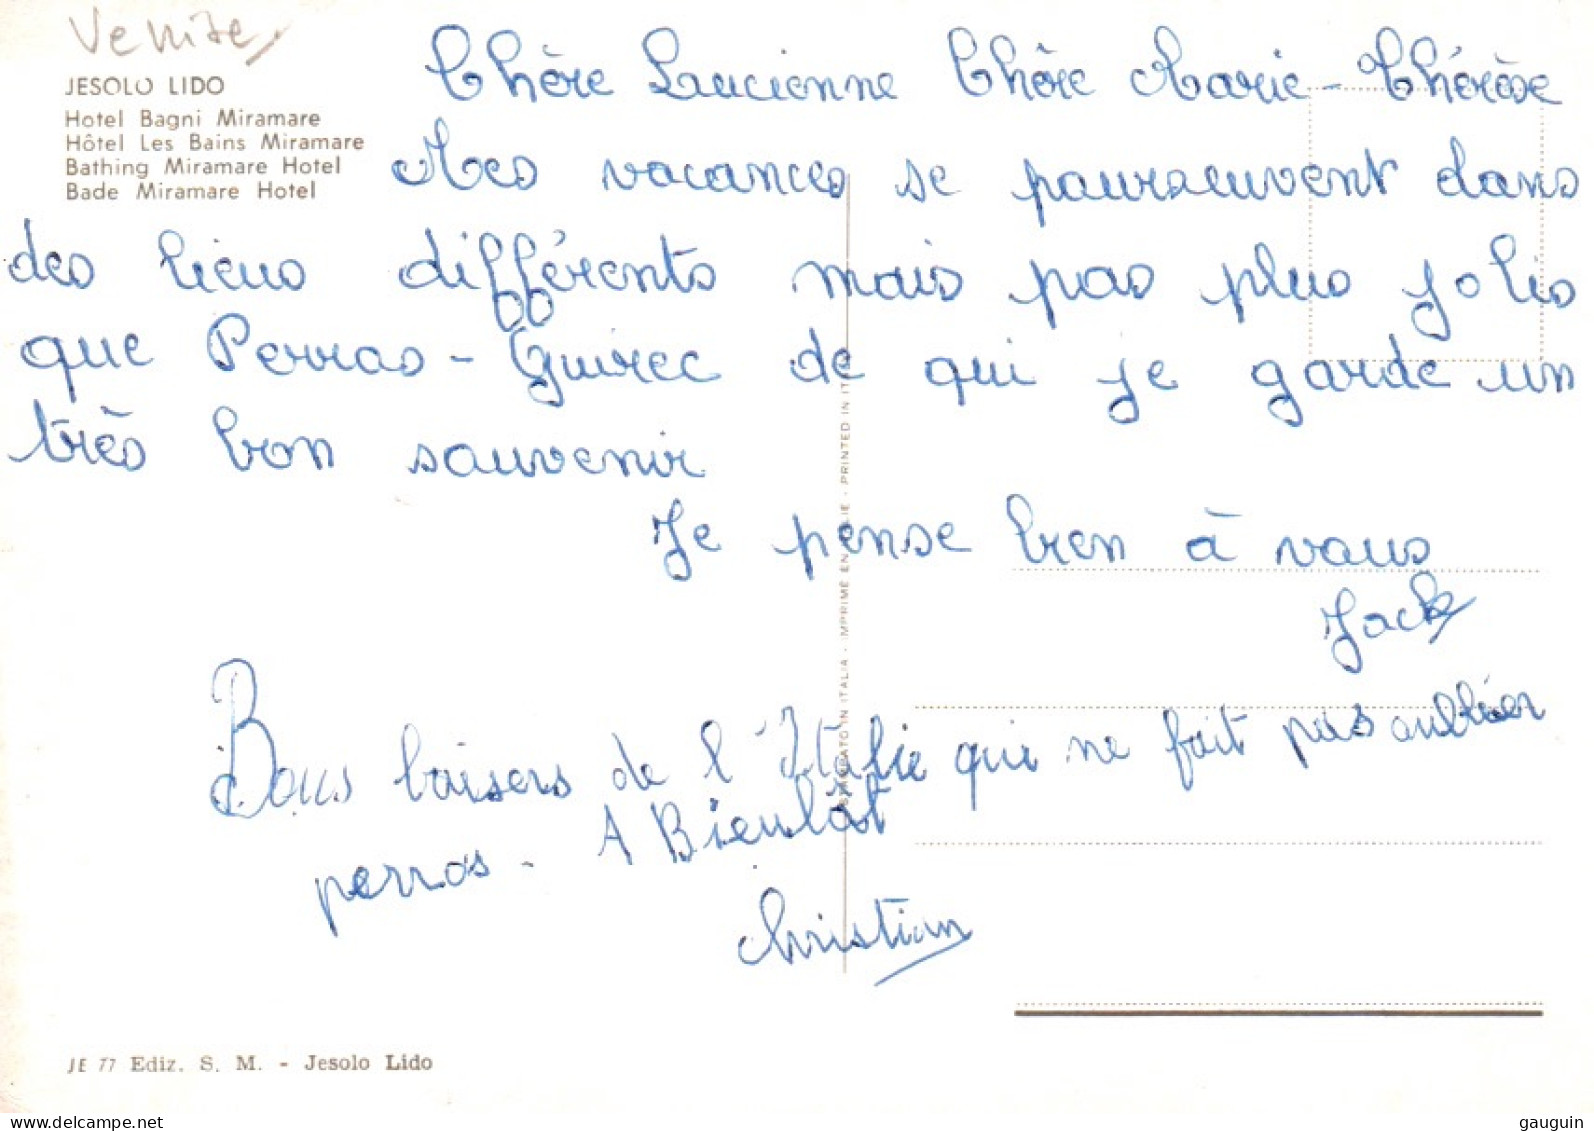 Venise
JESOLO LIDO
Hotel Bagni Miramare
Hôtel Les Bains Miramare
Bathing Miramare Hotel
Bade Miramare Hotel
Chère Lucienne Chère Marie-Thérèse
Mes vacances se poursuivent dans
des lieus différents mais pas plus jolis
que Perros-Guirec de qui je garde un
très bon souvenir
Je pense bien à vous
Jack
Bons baisers de l'Italie qui ne fait pas oublier
perros - A Bientôt
christian
STAMPATO IN ITALIA - IMPRIMÉ EN ITALIE - PRINTED IN ITALY
JE 77 Ediz. S. M. - Jesolo Lido
www.delcampe.net
gauguin